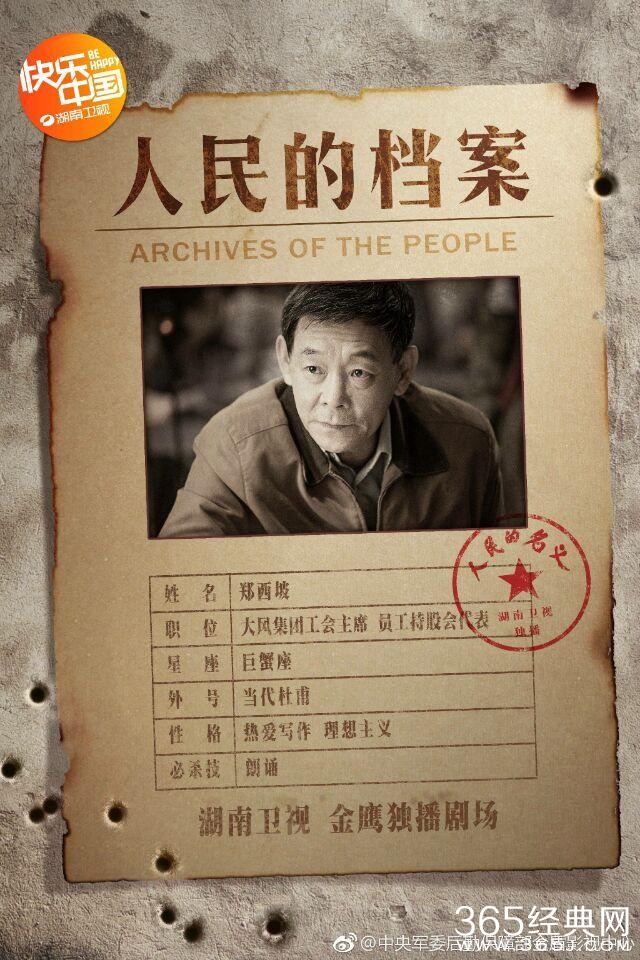 快乐
中国
BE
HAPPY
湖南卫视
人民的档案
ARCHIVES OF THE PEOPLE
人民的名义
湖南卫视
独播
姓 名 郑西坡
职 位 大风集团工会主席 员工持股会代表
星 座 巨蟹座
外 号 当代杜甫
性 格 热爱写作 理想主义
必杀技 朗诵
湖南卫视 金鹰独播剧场
365经典网
@中央军委后勤保障部金盾影视中心
www.365JD.com